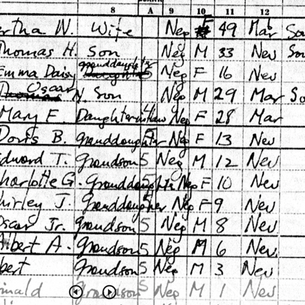 8 A 9 10 11 12
ertha W. Wife Neg F 49 Mar
Thomas H. Son Neg M 33 Nev
Emma Daisy granddaughter Neg F 16 Nev
Oscar N. Son Neg M 29 Mar
Mary F Daughterinlaw 4 Neg F 28 Mar
Doris B. granddaughter Neg F 13 Nev
Edward T. Grandson 5 Neg M 12 Nev
Charlotte G. Granddaughter Neg F 10 Nev
Shirley J. Granddaughter Neg F 9 Nev
Oscar Jr. Grandson 5 Neg M 8 Nev
Albert A. Grandson 5 Neg M 6 Nev
bert Grandson 5 Neg M 3 Nev
inald Grandson 5 Neg M 1 Nev